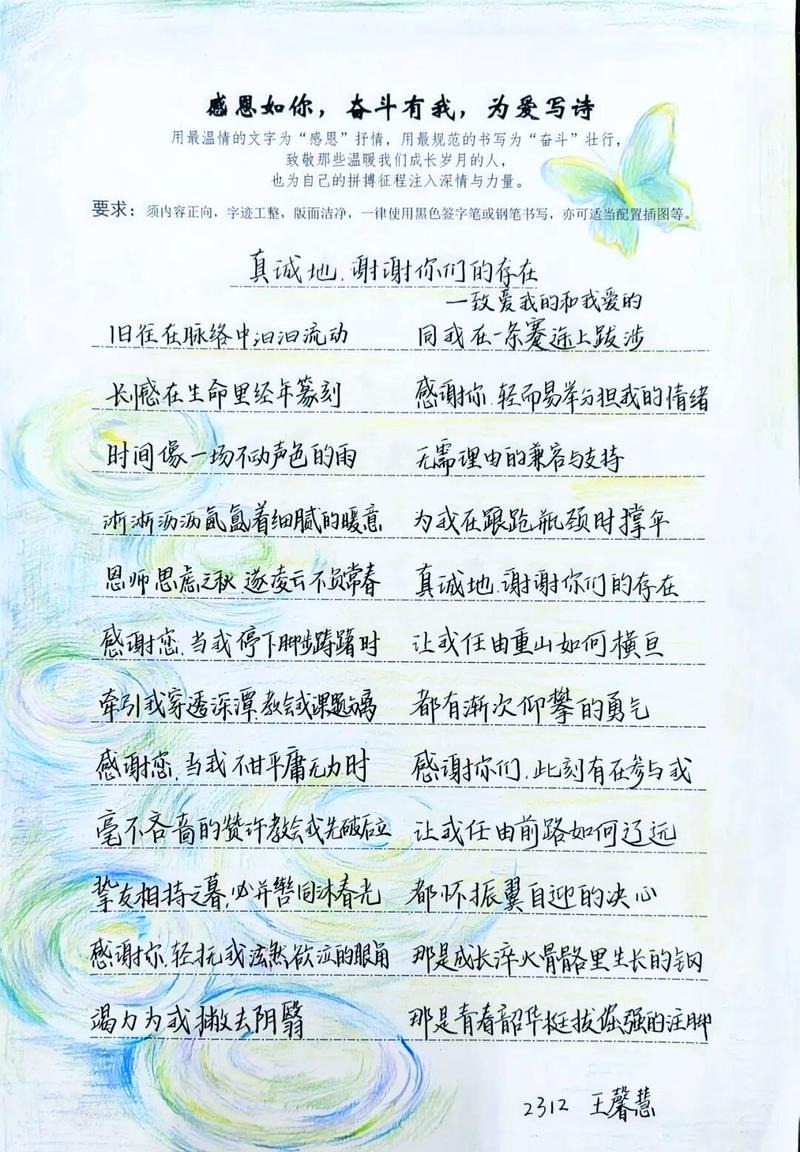 感恩如你，奋斗有我，为爱写诗
用最温情的文字为“感恩”抒情，用最规范的书写为“奋斗”壮行，
致敬那些温暖我们成长岁月的人，
也为自己的拼搏征程注入深情与力量。
要求：须内容正向，字迹工整，版面洁净，一律使用黑色签字笔或钢笔书写，亦可适当配置插图等。
真诚地.谢谢你们的存在
一致爱我的和我爱的
旧往在脉络中汩汩流动
长憾在生命里经年篆刻
时间像一场不动声色的雨
淅淅沥沥氤氲着细腻的暖意
恩师思虑之秋 遂凌云不负常春
感谢您.当我停下脚步踌躇时
牵引我穿透深潭.教会我课题分离
感谢您.当我不甘平庸无力时
毫不吝啬的赞许教会我先破后立
挚友相持之暮,必并辔同沐春光
感谢你.轻抚我泫然欲泣的眼角
竭力为我撇去阴翳
同我在一条蹇途上跋涉
感谢你.轻而易举分担我的情绪
无需理由的兼容与支持
为我在踉跄瓶颈时撑伞
真诚地.谢谢你们的存在
让我任由重山如何横亘
都有渐次仰攀的勇气
感谢你们.此刻有在参与我
让我任由前路如何辽远
都怀振翼自迎的决心
那是成长淬火骨骼里生长的钢
那是青春韶华挺拔倔强的注脚
2312 王馨慧